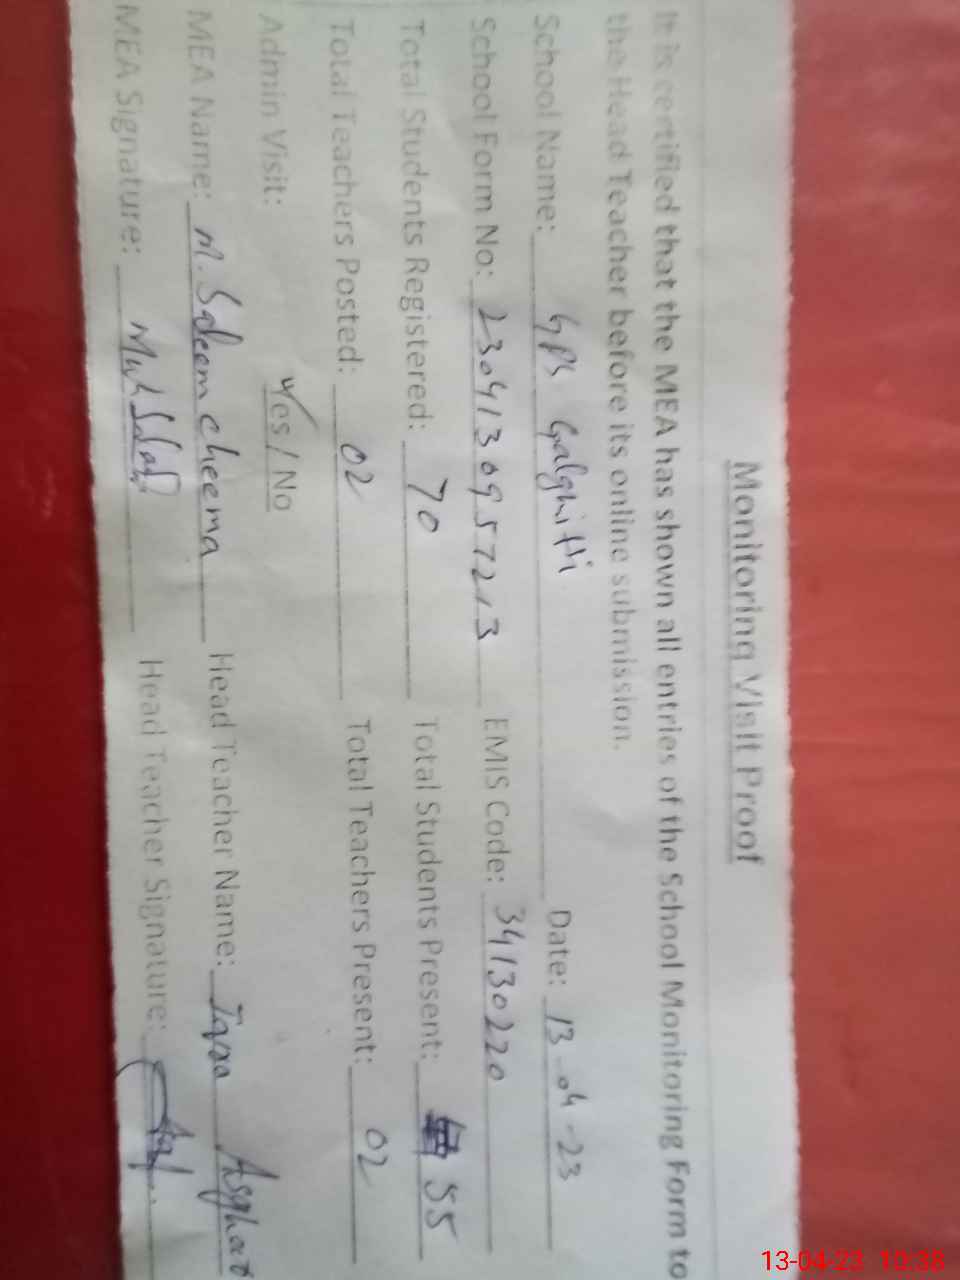 Monitoring Visit Proof
It is certified that the MEA has shown all entries of the School Monitoring Form to
the Head Teacher before its online submission.
School Name: GPS Galghitti Date: 13-04-23
School Form No: 2304130957213 EMIS Code: 34130220
Total Students Registered: 70 Total Students Present: 55
Total Teachers Posted: 02 Total Teachers Present: 02
Admin Visit: Yes / No
MEA Name: M. Saleem cheema Head Teacher Name: Asghar
MEA Signature: Head Teacher Signature:
13-04-23 10:38